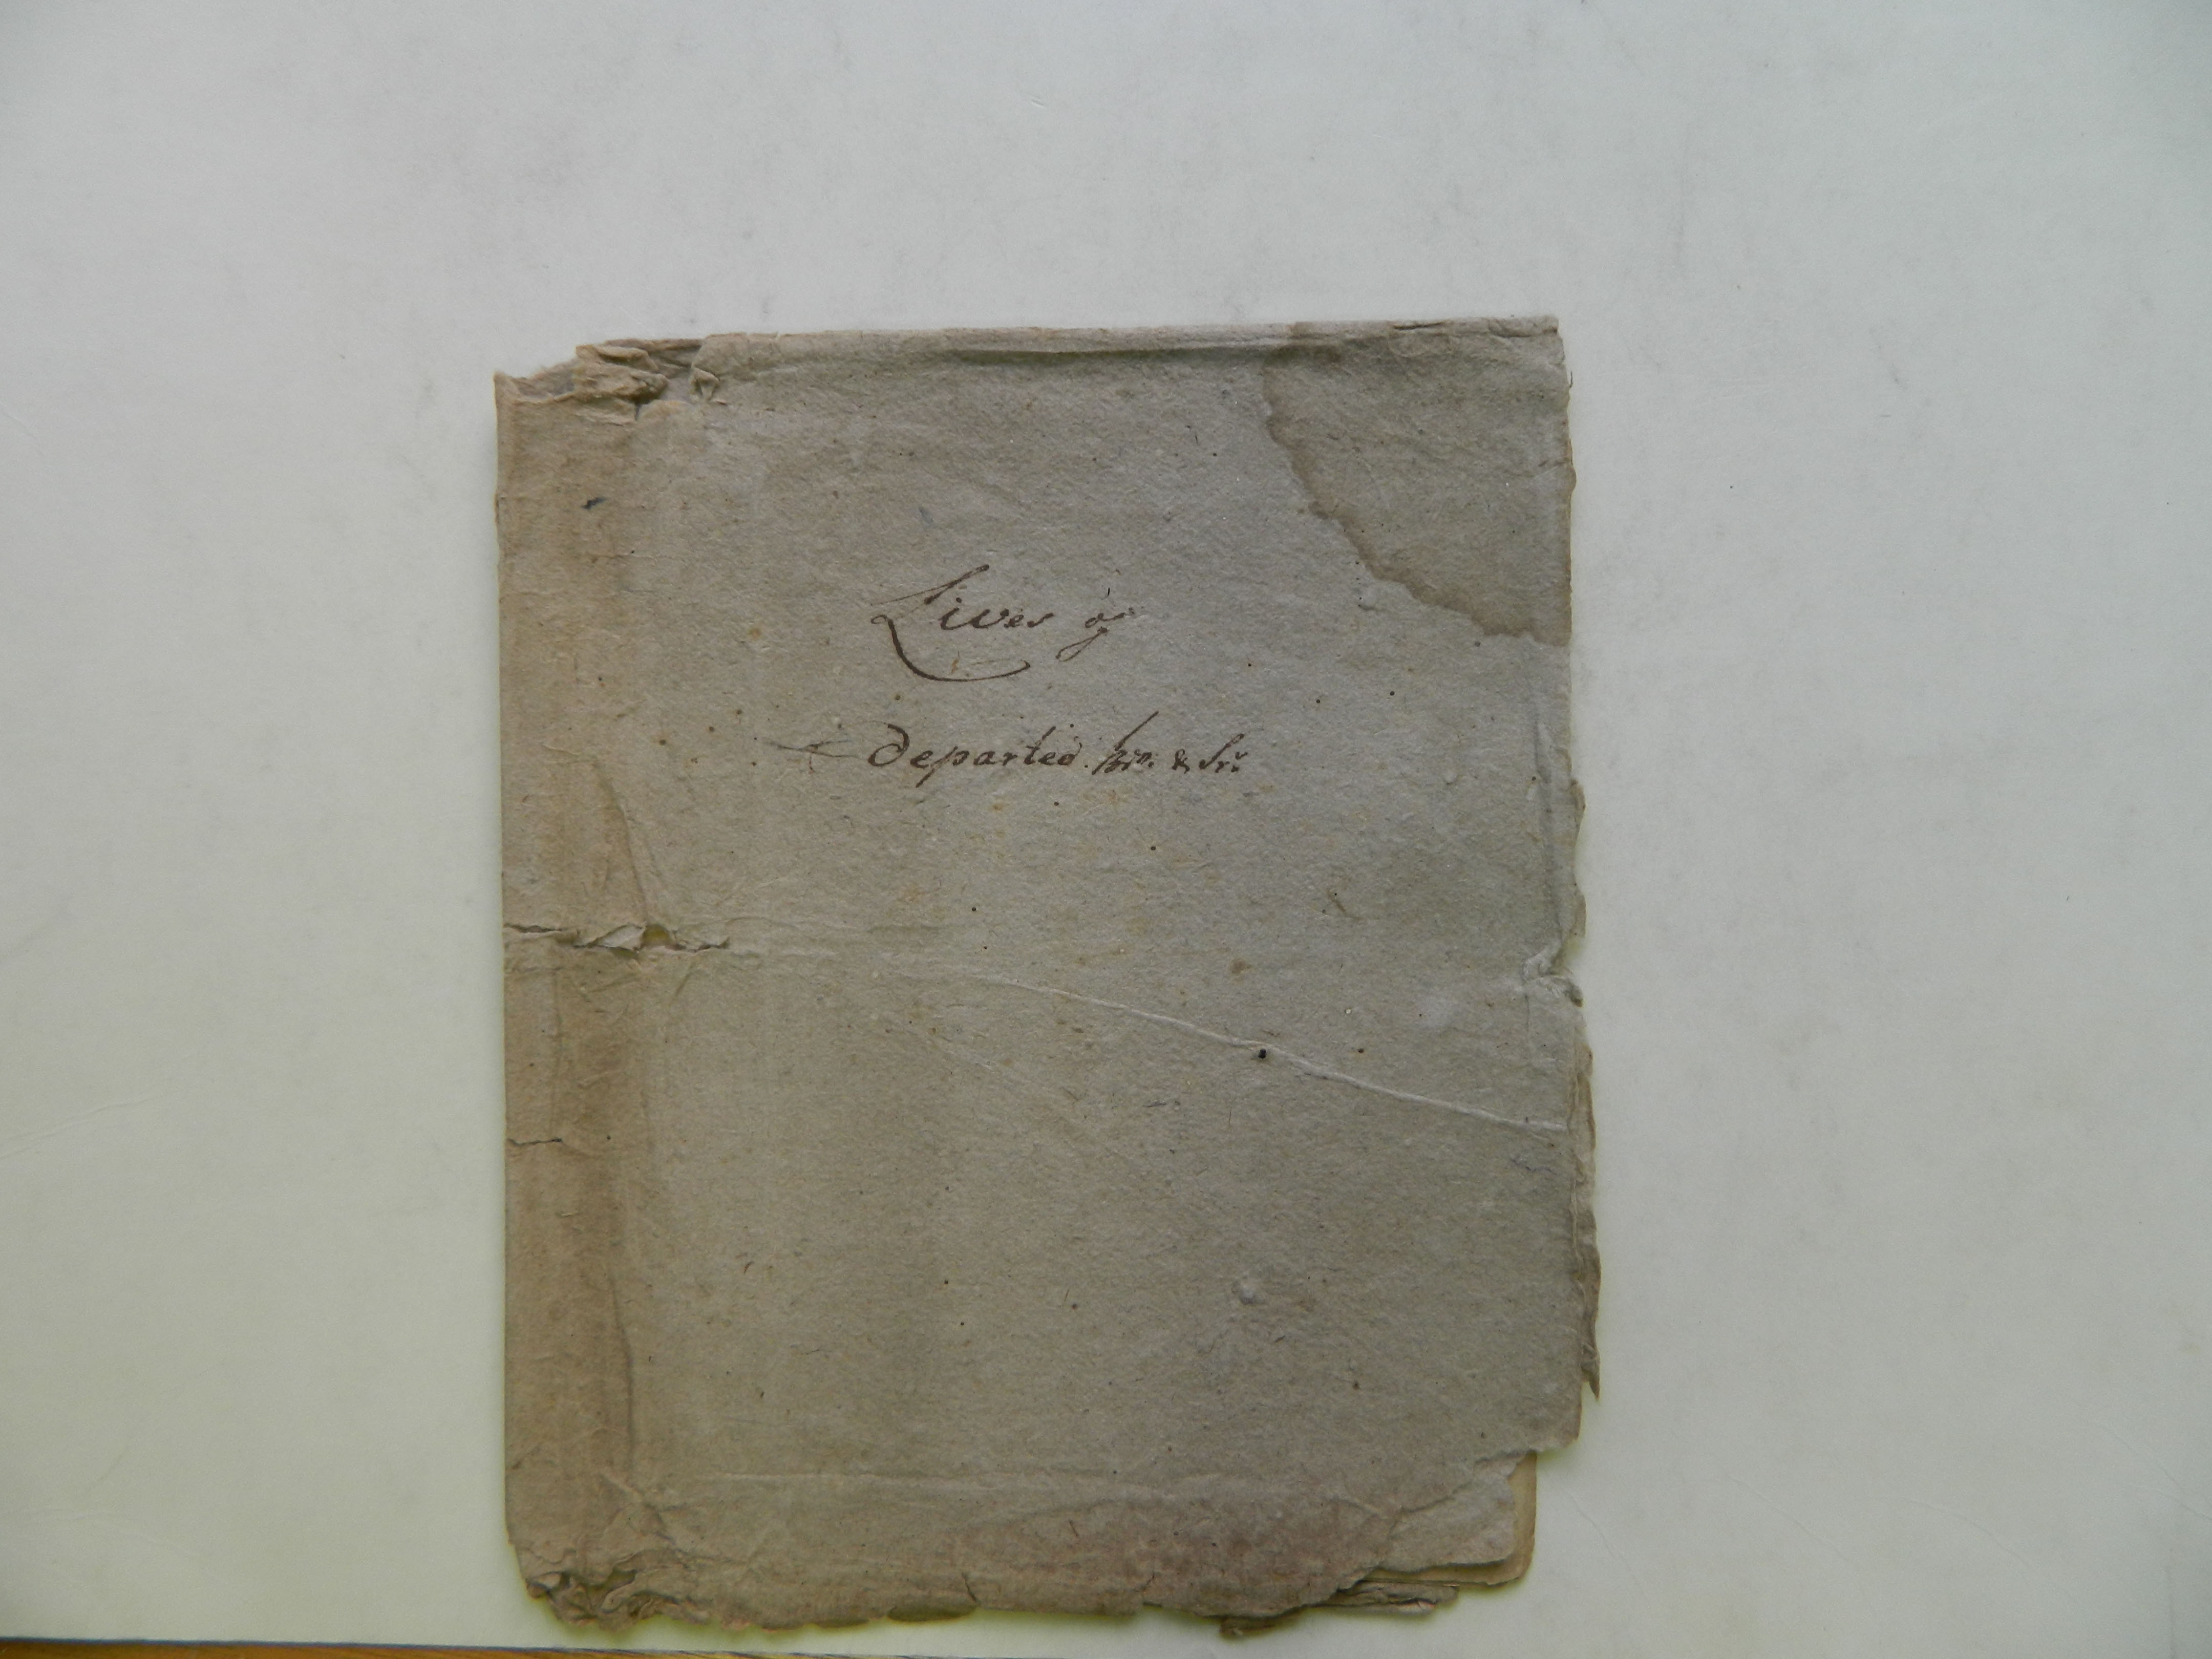 Lives of
departed. bro. & Sr.